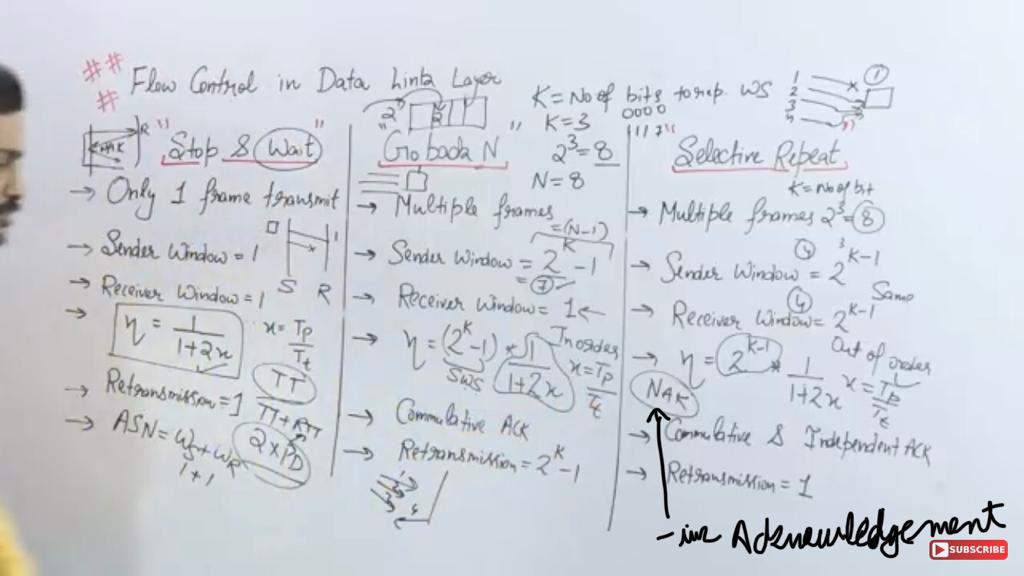 ## Flow Control in Data Link Layer
#
K = No of bits to rep WS
K = 3
2³ = 8
N = 8
1
2
3
4
"Stop & Wait"
→ Only 1 frame transmit
→ Sender Window = 1
S R
→ Receiver Window = 1
→ η = 1/(1+2x)
x = Tp/Tt
TT/(TT+RTT)
→ Retransmission = 1
2×PD
→ ASN = Ws + WR
1 + 1
"Go back N"
→ Multiple frames
= (N-1)
→ Sender Window = 2^K - 1
= 7
→ Receiver Window = 1 ←
In order
→ η = (2^K - 1) * 1/(1+2x)
SWS
x = Tp/Tt
→ Commulative ACK
→ Retransmission = 2^K - 1
"Selective Repeat"
K = No of bit
→ Multiple frames 2³ = 8
4
→ Sender Window = 2^K-1
4
Same
→ Receiver Window = 2^K-1
Out of order
→ η = 2^K-1 * 1/(1+2x)
x = Tp/Tt
NAK
→ Commulative & Independent ACK
→ Retransmission = 1
-ive Acknowledgement
SUBSCRIBE